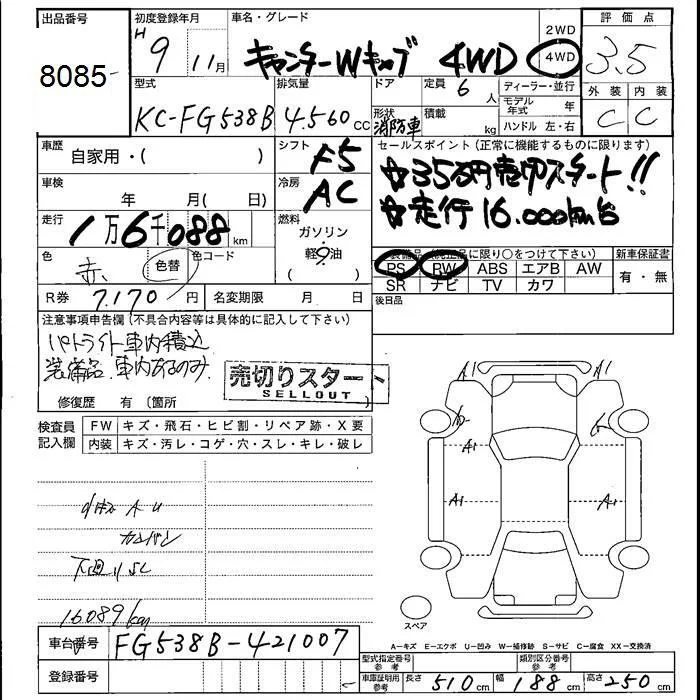 出品番号
8085
初度登録年月
H 9 11月
車名・グレード
キャンターWキャブ 4WD
2WD
4WD
評価点
3.5
外装 内装
C C
型式
KC-FG538B
排気量
4.560cc
ドア
形状
消防車
定員 6人
積載 kg
ディーラー・並行
モデル年式 年
ハンドル 左・右
車歴
自家用・( )
シフト
F5
セールスポイント (正常に機能するものに限ります)
☆35万円売切スタート!!
☆走行16.000km台
車検
年 月( 日)
冷房
AC
走行
1万6千088km
燃料
ガソリン
軽油
( )
色
赤
色替
色コード
装備品 (純正品に限り○をつけて下さい)
PS PW ABS エアB AW
SR ナビ TV カワ
新車保証書
有・無
R券 7.170円
名変期限 月 日
後日品
注意事項申告欄(不具合内容等は具体的に記入して下さい)
パトライト車内積込
装備品 車内あるのみ
売切りスタート
SELLOUT
修復歴 有 (箇所 )
検査員
記入欄
FW キズ・飛石・ヒビ割・リペア跡・X要
内装 キズ・汚レ・コゲ・穴・スレ・キレ・破レ
A U
下廻りSC
16.089km
A1 A1
A1
A1 A1
スペア
車台番号
FG538B-421007
登録番号
A−キズ E−エクボ U−凹み W−補修跡 S−サビ C−腐食 XX−交換済
型式指定番号
参考
類別区分番号
参考
車庫証明用
参考
長さ 510cm 幅 188cm 高さ 250cm